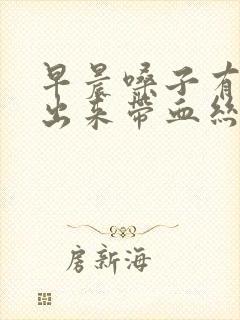 早晨嗓子有
出来带血丝
房新海